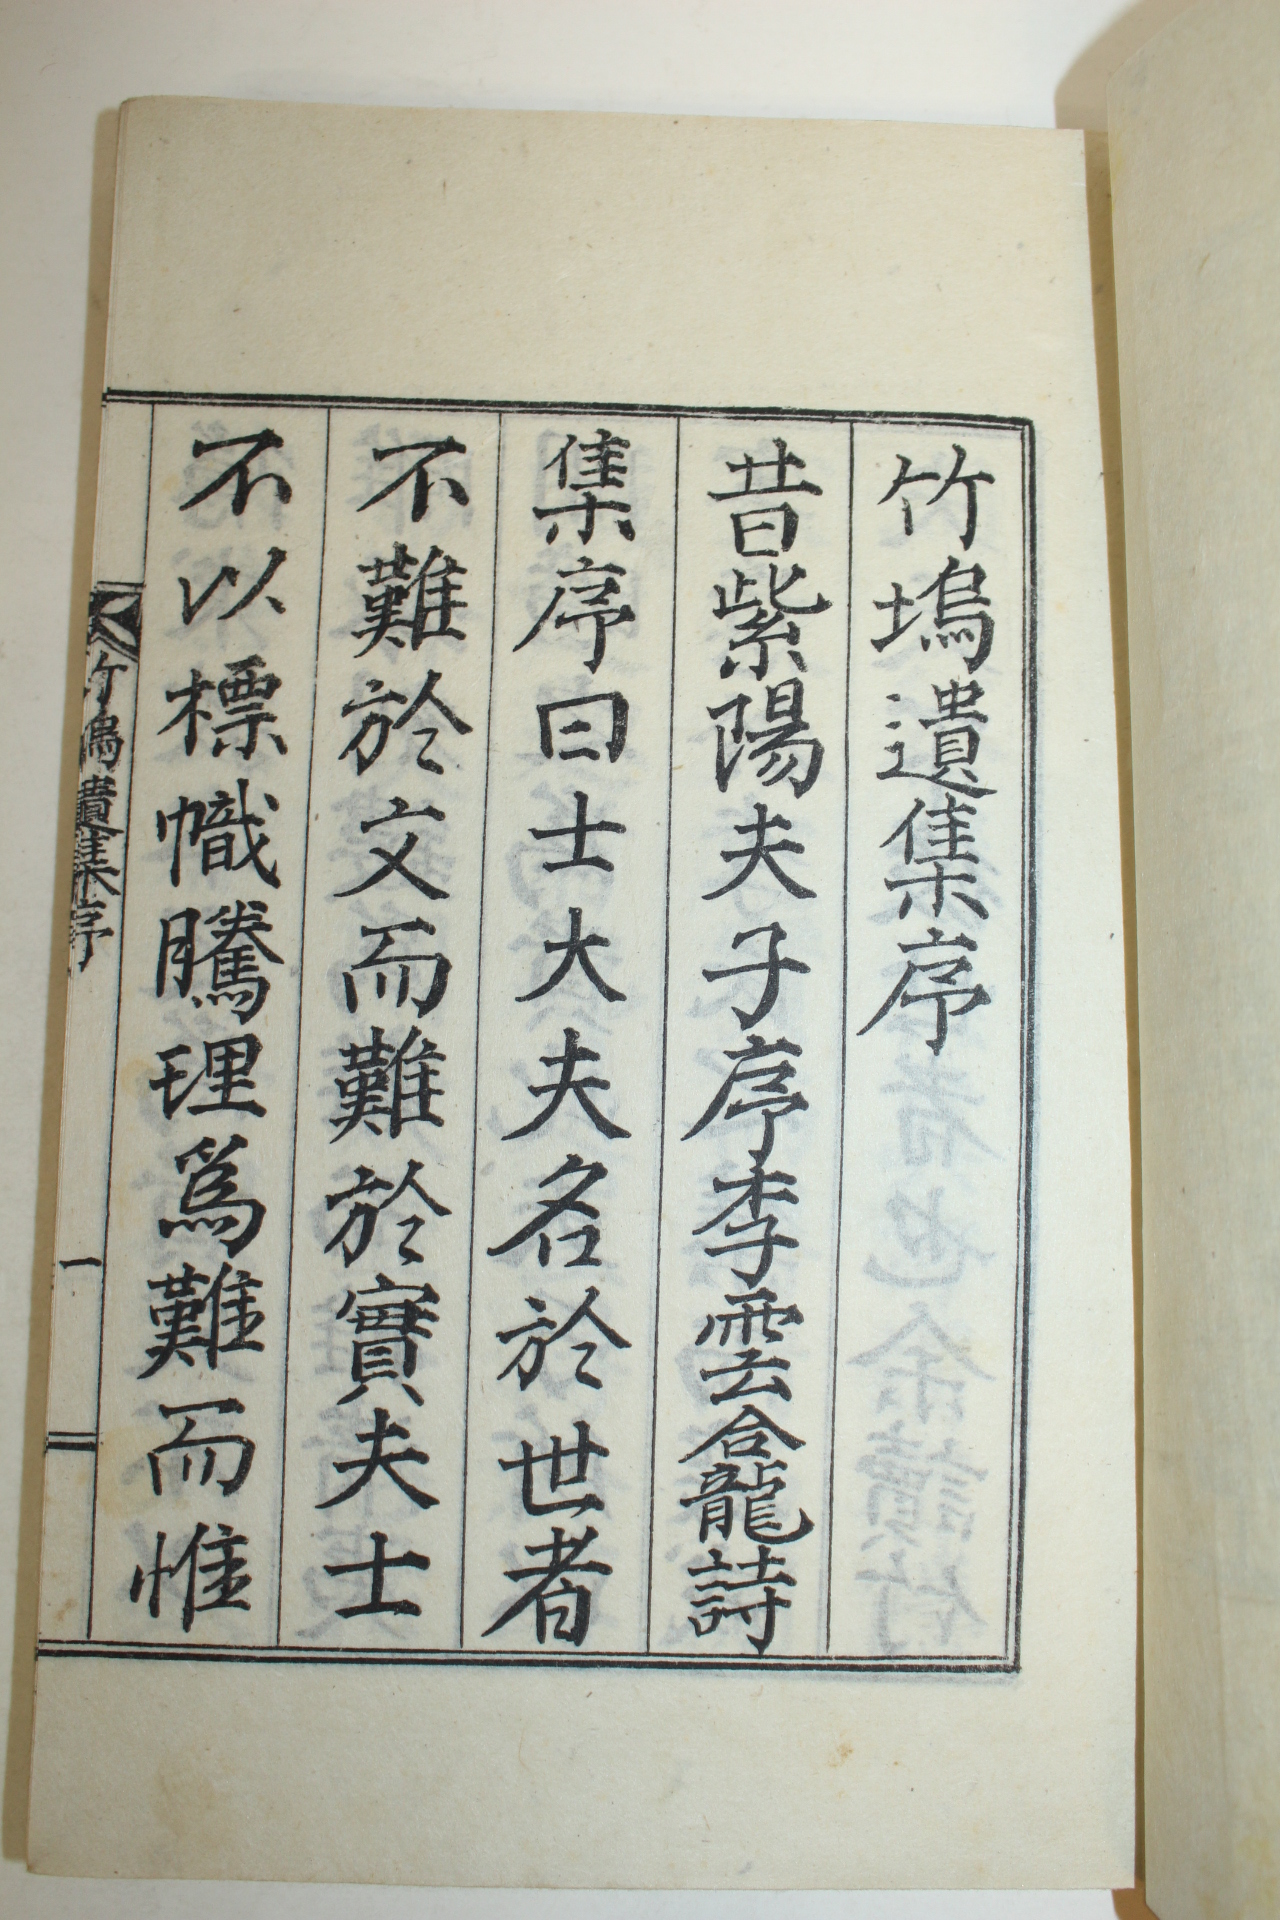 竹塢遺集序
昔紫陽夫子序李雲龕詩
集序曰士大夫名於世者
不難於文而難於實夫士
不以標幟騰理爲難而惟
竹塢遺集序
一